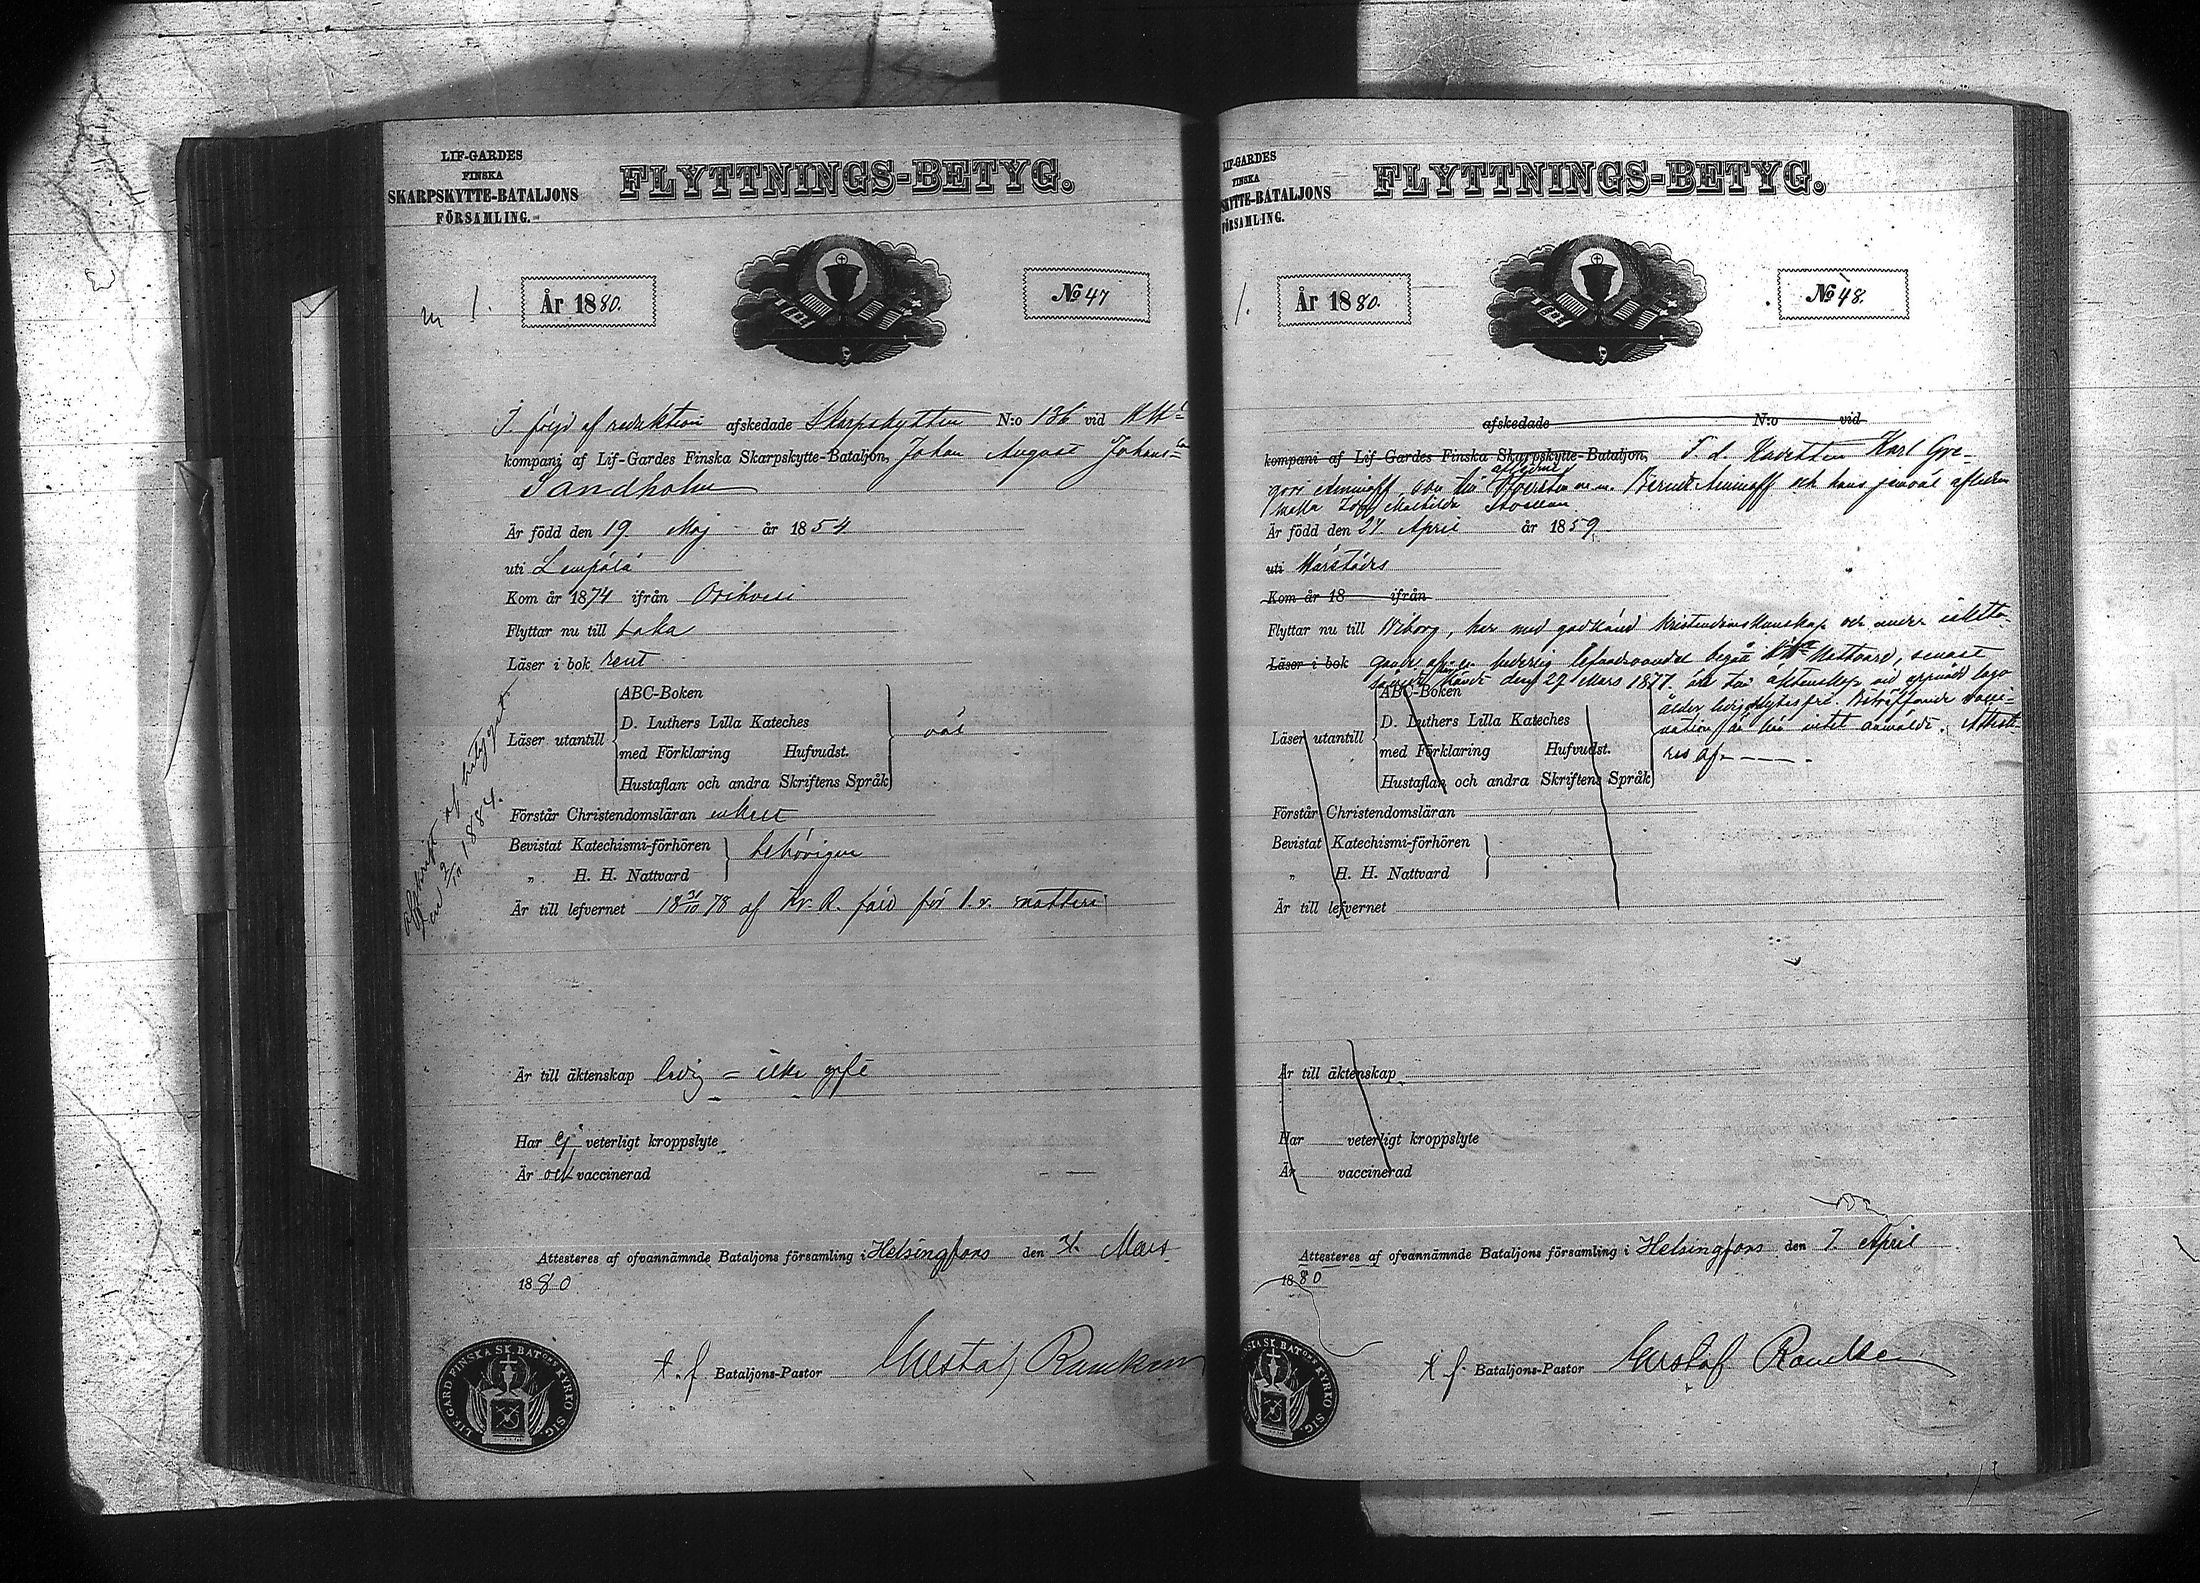 LIF-GARDES
FINSKA
SKARPSKYTTE-BATALJONS
FÖRSAMLING.
FLYTTNINGS-BETYG.
1.
År 1880.
No 47
I följd af reduktion afskedade Skarpskytten N:o 136 vid
kompani af Lif-Gardes Finska Skarpskytte-Bataljon, Johan August Johans-
Sandholm
Är född den 19 Maj år 1854
uti Lempälä
Kom år 1874 ifrån Orihvesi
Flyttar nu till
Läser i bok rent
ABC-Boken
D. Luthers Lilla Kateches
Läser utantill
med Förklaring Hufvudst.
Hustaflan och andra Skriftens Språk
Förstår Christendomsläran enkelt
Bevistat Katechismi-förhören
behörigen
„ H. H. Nattvard
Är till lefvernet 18 78 af Kr. R. för 1.
Är till äktenskap ledig = icke gift
Har ej veterligt kroppslyte
Är och vaccinerad
afskrift af betyget
1884.
Attesteres af ofvannämnde Bataljons församling i Helsingfors den Mars
1880
t. f. Bataljons-Pastor Gustaf
LIF. GARD FINSKA SK. BAT:ONS KYRKO SIG.
LIF-GARDES
FINSKA
SKYTTE-BATALJONS
FÖRSAMLING.
FLYTTNINGS-BETYG.
1.
År 1880.
No 48.
afskedade N:o vid
kompani af Lif-Gardes Finska Skarpskytte-Bataljon, F. d. Kadetten Karl Gre-
gori Aminoff, son till aflidne m.m. Berndt Aminoff och hans jemväl aflidna
maka Mathilda
Är född den 27 April år 1859
uti
Kom år 18 ifrån
Flyttar nu till Wiborg, har med godkänd kristendomskunskap och under iaktta-
Läser i bok gande af en hederlig lefnadsvandel begått Nattvard, senast
den 27 Mars 1877. är till äktenskap vid uppnådd laga
ABC-Boken
ålder ledig, lytesfri. Beträffande vacci-
D. Luthers Lilla Kateches
nation är här intet anmäldt. Atteste-
Läser utantill
med Förklaring Hufvudst.
res af - - - -.
Hustaflan och andra Skriftens Språk
Förstår Christendomsläran
Bevistat Katechismi-förhören
„ H. H. Nattvard
Är till lefvernet
Är till äktenskap
Har veterligt kroppslyte
Är vaccinerad
Attesteres af ofvannämnde Bataljons församling i Helsingfors den 7. April
1880
t. f. Bataljons-Pastor Gustaf
SKA SK. BAT:ONS KYRKO SIG.